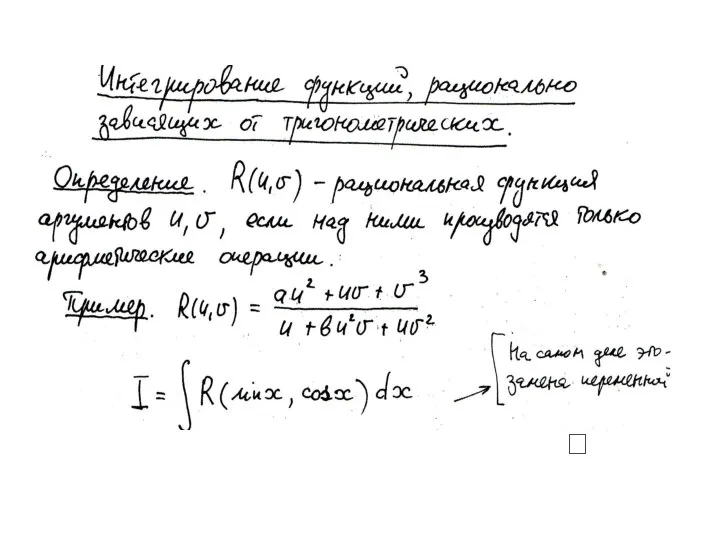 Интегрирование функций, рационально
зависящих от тригонометрических.
Определение. R(u,v) – рациональная функция
аргументов u, v, если над ними производятся только
арифметические операции.
Пример. R(u,v) = (au² + uv + v³) / (u + bu²v + uv²)
I = ∫ R(sinx, cosx) dx
На самом деле это-
замена переменной